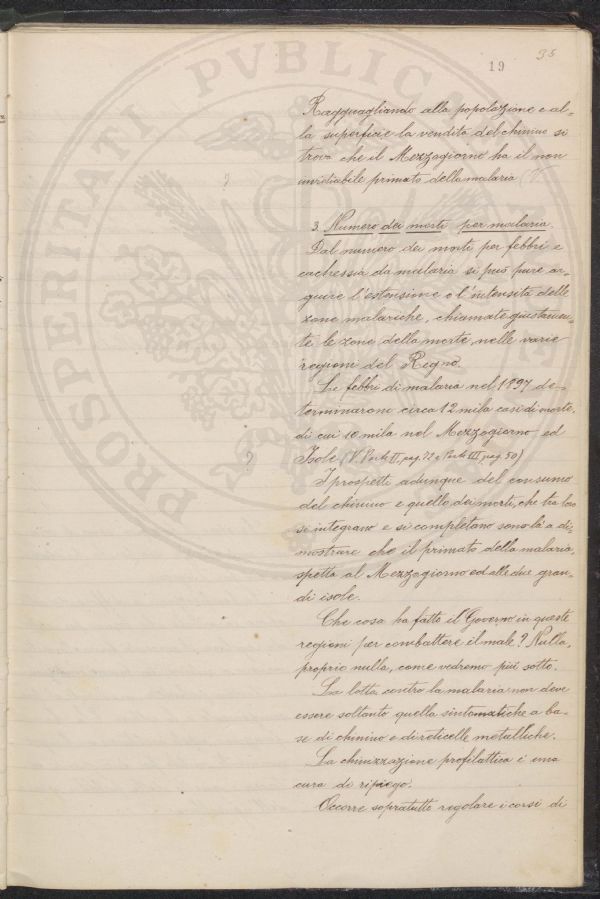 35
19
PROSPERITATI PVBLICAE
Ragguagliando alla popolazione e al-
la superficie la vendita del chinino si
trova che il Mezzogiorno ha il non
invidiabile primato della malaria (V
3. Numero dei morti per malaria.
Dal numero dei morti per febbri e
cachessia da malaria si può pure ar-
guire l'estensione e l'intensità delle
zone malariche, chiamate giustamen-
te le zone della morte, nelle varie
regioni del Regno.
Le febbri di malaria nel 1897 de-
terminarono circa 12 mila casi di morte,
di cui 10 mila nel Mezzogiorno ed
Isole (V. Parte II, pag. 72 e Parte III, pag. 50)
I prospetti adunque del consumo
del chinino e quello dei morti, che tra loro
si integrano e si completano sono là a di-
mostrare che il primato della malaria,
spetta al Mezzogiorno ed alle due gran-
di isole.
Che cosa ha fatto il Governo in queste
regioni per combattere il male? Nulla,
proprio nulla, come vedremo più sotto.
La lotta contro la malaria non deve
essere soltanto quella sintomatiche a ba-
se di chinino e di reticelle metalliche.
La chinizzazione profilattica è una
cura di ripiego.
Occorre sopratutto regolare i corsi di